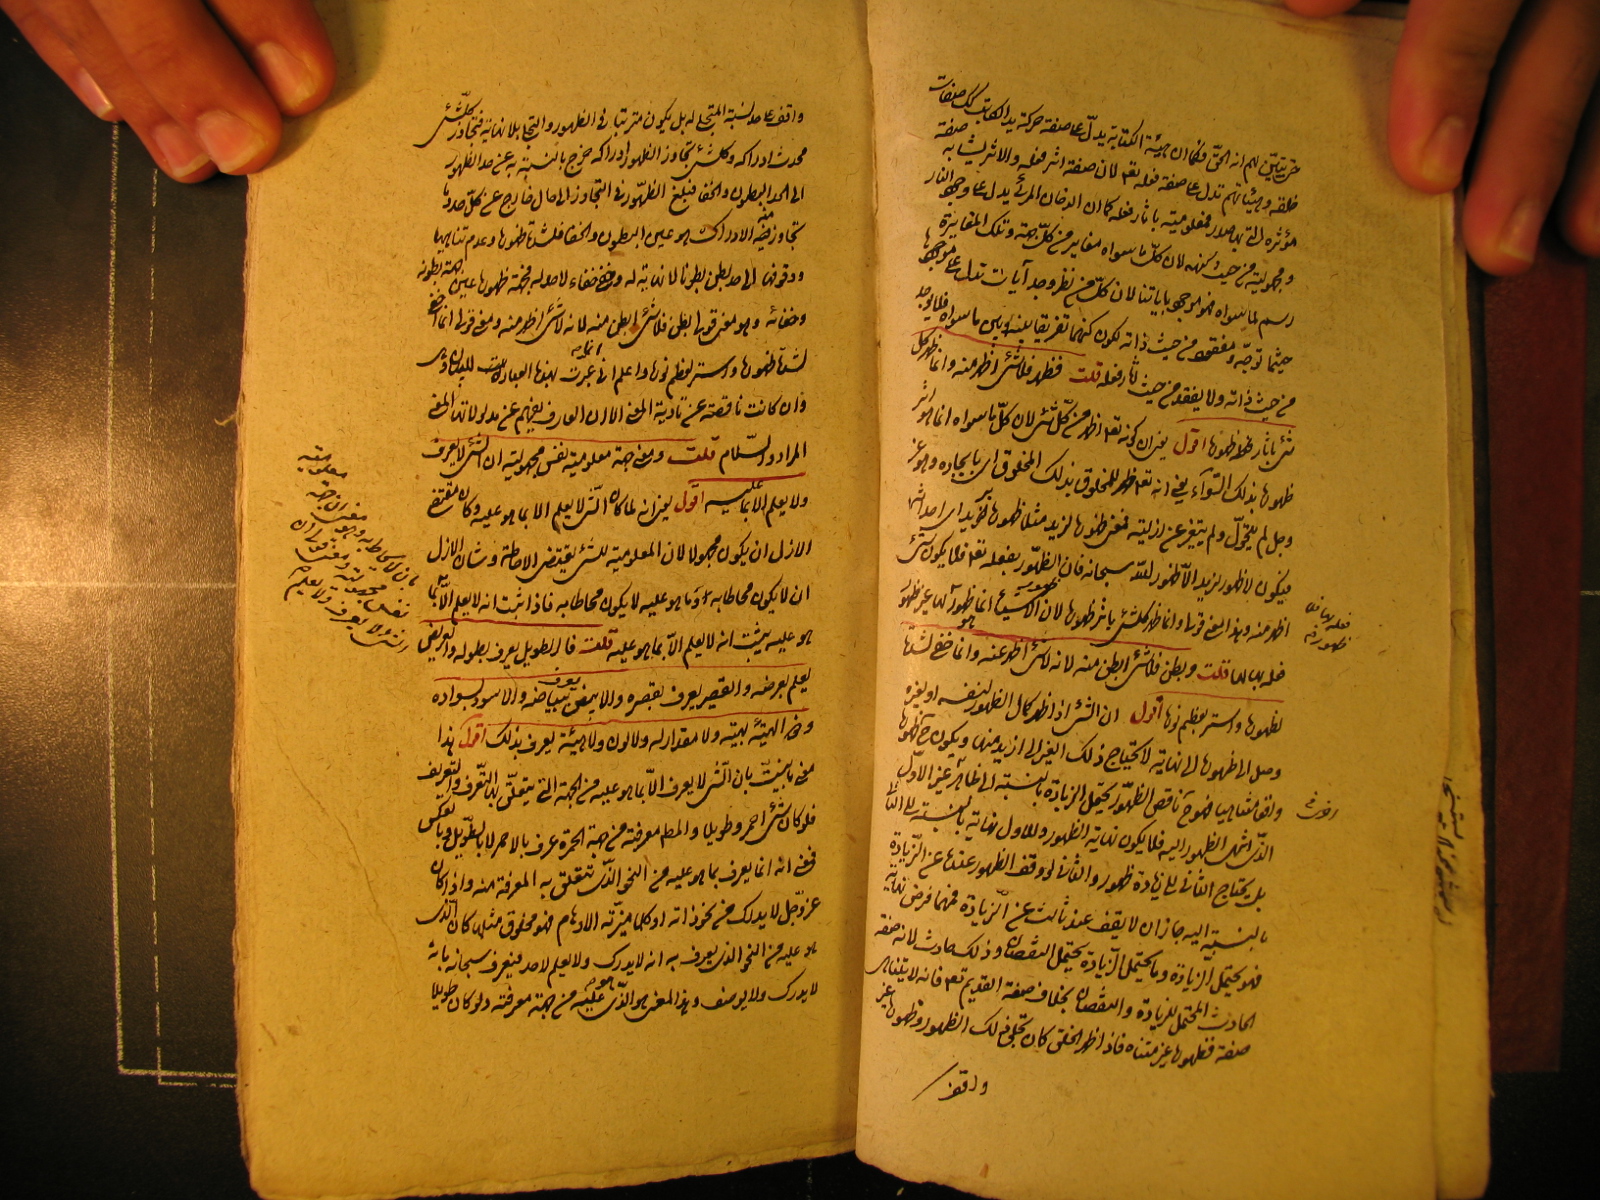 حتى يتبيّن لهم انه الحقّ فكما ان هيئة الكتابة يدلّ على صفة حركة يد الكاتب كك صفات
خلقه وهيئاتهم تدل على صفة فعله تعه لان صفة اثر فعله والاثر يشابه صفة
مؤثره التى بها صدر فمعلوميته باثار فعله كما ان الدخان المرئ يدل على وجود النار
ومجهوليته من حيث كنهه لان كلّ ما سواه مغاير من كلّ جهة وتلك المغايرة
رسم لما سواه فهو موجود باياتنا لان كلّ من نظر وجد آيات تدل على موجدها
حيثما توجّه ومفقود من حيث ذاته لكون كنهه تفريقا بينه وبين ما سواه فلا يوجد
من حيث ذاته ولا يفقد من حيث اثار فعله قلت فظهر فلا شئ اظهر منه وانما ظهر لكل
شئ باثار ظهورها اقول يعنى ان كونه تعه اظهر من كلّ شئ لان كلّ ما سواه انما هو اثر
ظهورها بذلك السّواء يعنى انه تعه ظهر للمخلوق بذلك المخلوق اى بايجاده وهو عز
وجل لم يتحوّل ولم يتغير عن ازليته فمعنى ظهورها لزيد مثلا ظهورها بزيد اى احداثها
فيكون لا ظهور لزيد الّا ظهور للّه سبحانه فان الظّهور بفعله تعه فلا يكون شئ
اظهر منه وهذا معنى قولها وانما ظهر لكلشئ باثر ظهورها لان الاشياء انما هو ظهور آلها غير ظهور
فله بها لها قلت وبطن فلا شئ ابطن منه لانه لا شئ اظهر عنه وانما خفى لشدّة
ظهورها واستتر بعظم نورها اقول ان الشئ اذا ظهر كمال الظهور لنفسه او لغيره
وصل الى ظهورها الى نهاية لا يحتاج ذلك الغير الى ازيد منها ويكون ح ظهورها
واقفا متناهيا فهو ح ناقص الظهور يحتمل الزيادة بالنسبة الى ظاهر غير الاوّل
الذّى انتهى الظهور اليه فلا يكون نهاية الظهور وللاول نهاية بالنسبة الى الثانى
بل يحتاج الثانى الى زيادة ظهور والثانى لو وقف الظهور عندها عن الزّيادة
بالنسبة اليه جاز ان لا يقف عند ثالث عن الزّيادة فمهما فرض نهاية
فهو يحتمل الزيادة وما يحتمل الزّيادة يحتمل النقصان وذلك حادث لانه صفة
الحادث المحتمل للزيادة والنقصان بخلاف صفة القديم تعه فانه لا يتناهى
صفة فظهورها غير متناه فاذا ظهر لخلق كان تجلى ذلك الظهور وظهورها غير
واقف
فظهورها به
ظهوره
واقف على حد لنسبة المتجلى له بل يكون مترتبا فى الظهور والتجلى بلا نهاية فتجاوز كلّشئ
محدث ادراكه وكلشئ تجاوز الظهور ادراكه خرج بالنسبة به عن حد الظهور
الى الحد البطون والخفا فبلغ الظّهور فى التجاوز الى حال خارج عن كلّ حد وما
تجاوز حدّ الادراك هو عين البطون والخفا فلشدّة ظهورها وعدم تناهيها
ووقوفها الى حد بطن بطونا لا نهاية له وخفى خفاء لا حد له فجهة ظهورها عين جهة بطونه
وخفائه وهو معنى قولها بطن فلا شئ ابطن منه لانه لا شئ اظهر منه ومعنى قولها انما خفى
لشدّة ظهورها واستتر بعظم نورها واعلم انى انما عبرت بهذا العبارة للبيان وهى
وان كانت ناقصة عن تأدية المعنى الّا ان العارف يفهم عن مدلولاتها المعنى
المراد والسّلام قلت ومعنى جهة معلوميته نفس مجهوليته ان الشئ لا يعرف
ولا يعلم الّا بما هو عليه اقول يعنى انه لما كان الشئ لا يعلم الا بما هو عليه وكان مقتضى
الازل ان يكون مجهولا لان المعلومية للشئ يقتضى الاحاطة وشان الازل
ان لا يكون محاطا به وما هو عليه لا يكون محاطا به فاذا ثبت انه لا يعلم الّا بما
هو عليه يثبت انه لا يعلم الّا بما هو عليه قلت فالطويل يعرف بطوله والعريض
يعلم بعرضه والقصير يعرف بقصره والابيض يعرف ببياضه والاسود بسواده
وذو الهيئة بهيئته ولا مقدار له ولا لون ولا هيئة يعرف بذلك اقول هذا
معنى ما بينت بان الشئ لا يعرف الّا بما هو عليه من الجهة التى يتعلّق بها التّعرف والتعريف
فلو كان شئ احمر وطويلا والمط معرفته من جهة الحمرة عرف بالاحمر لا بالطّويل وبالعكس
فمعنى انه انما يعرف بما هو عليه من النحو الّذى تتعلق به المعرفة منه واذا كان
عزّ وجل لا يدرك من نحو ذاته او كلما ميّزته الاوهام فهو مخلوق مثلها كان الّذى
هو عليه من النحو الذى يعرف به انه لا يدرك ولا يعلم لاحد فيعرف سبحانه بانه
لا يدرك ولا يوصف وهذا المعنى هو الذّى هو عليه من جهة معرفته ولو كان طويلا
معلوميته
بان لا يحاط به وهو معنى ان جهة
نفس مجهوليته ومعنى قولنا ان
الشئ لا يعرف ولا يعلم